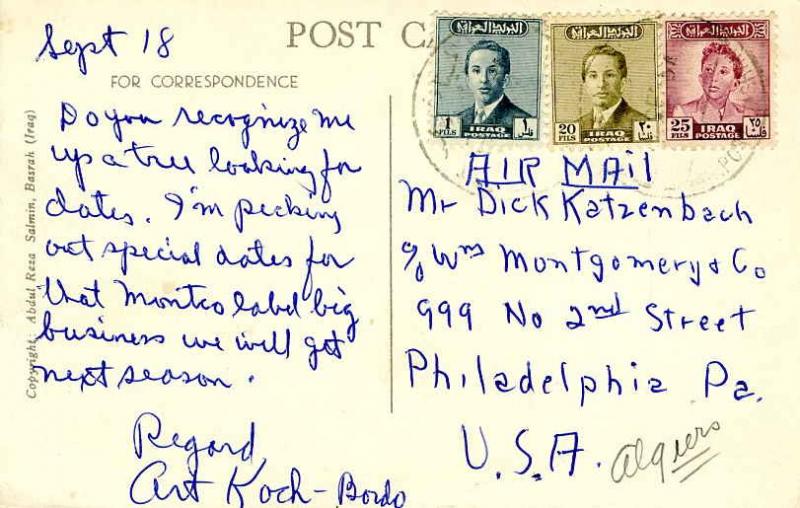 Sept 18
POST CA
FOR CORRESPONDENCE
Do you recognize me
up a tree looking for
dates. I'm picking
out special dates for
that Montco label big
business we will get
next season.
Regard,
Art Koch-Bordo
Copyright: Abdul Reza Salmin, Basrah (Iraq)
1 FILS
١ فلس
IRAQ
POSTAGE
20 FILS
٢٠
IRAQ
POSTAGE
25 FILS
٢٥
IRAQ
POSTAGE
AIR MAIL
Mr Dick Katzenbach
c/o Wms Montgomery & Co
999 No 2nd Street
Philadelphia Pa.
U.S.A.
Algiers